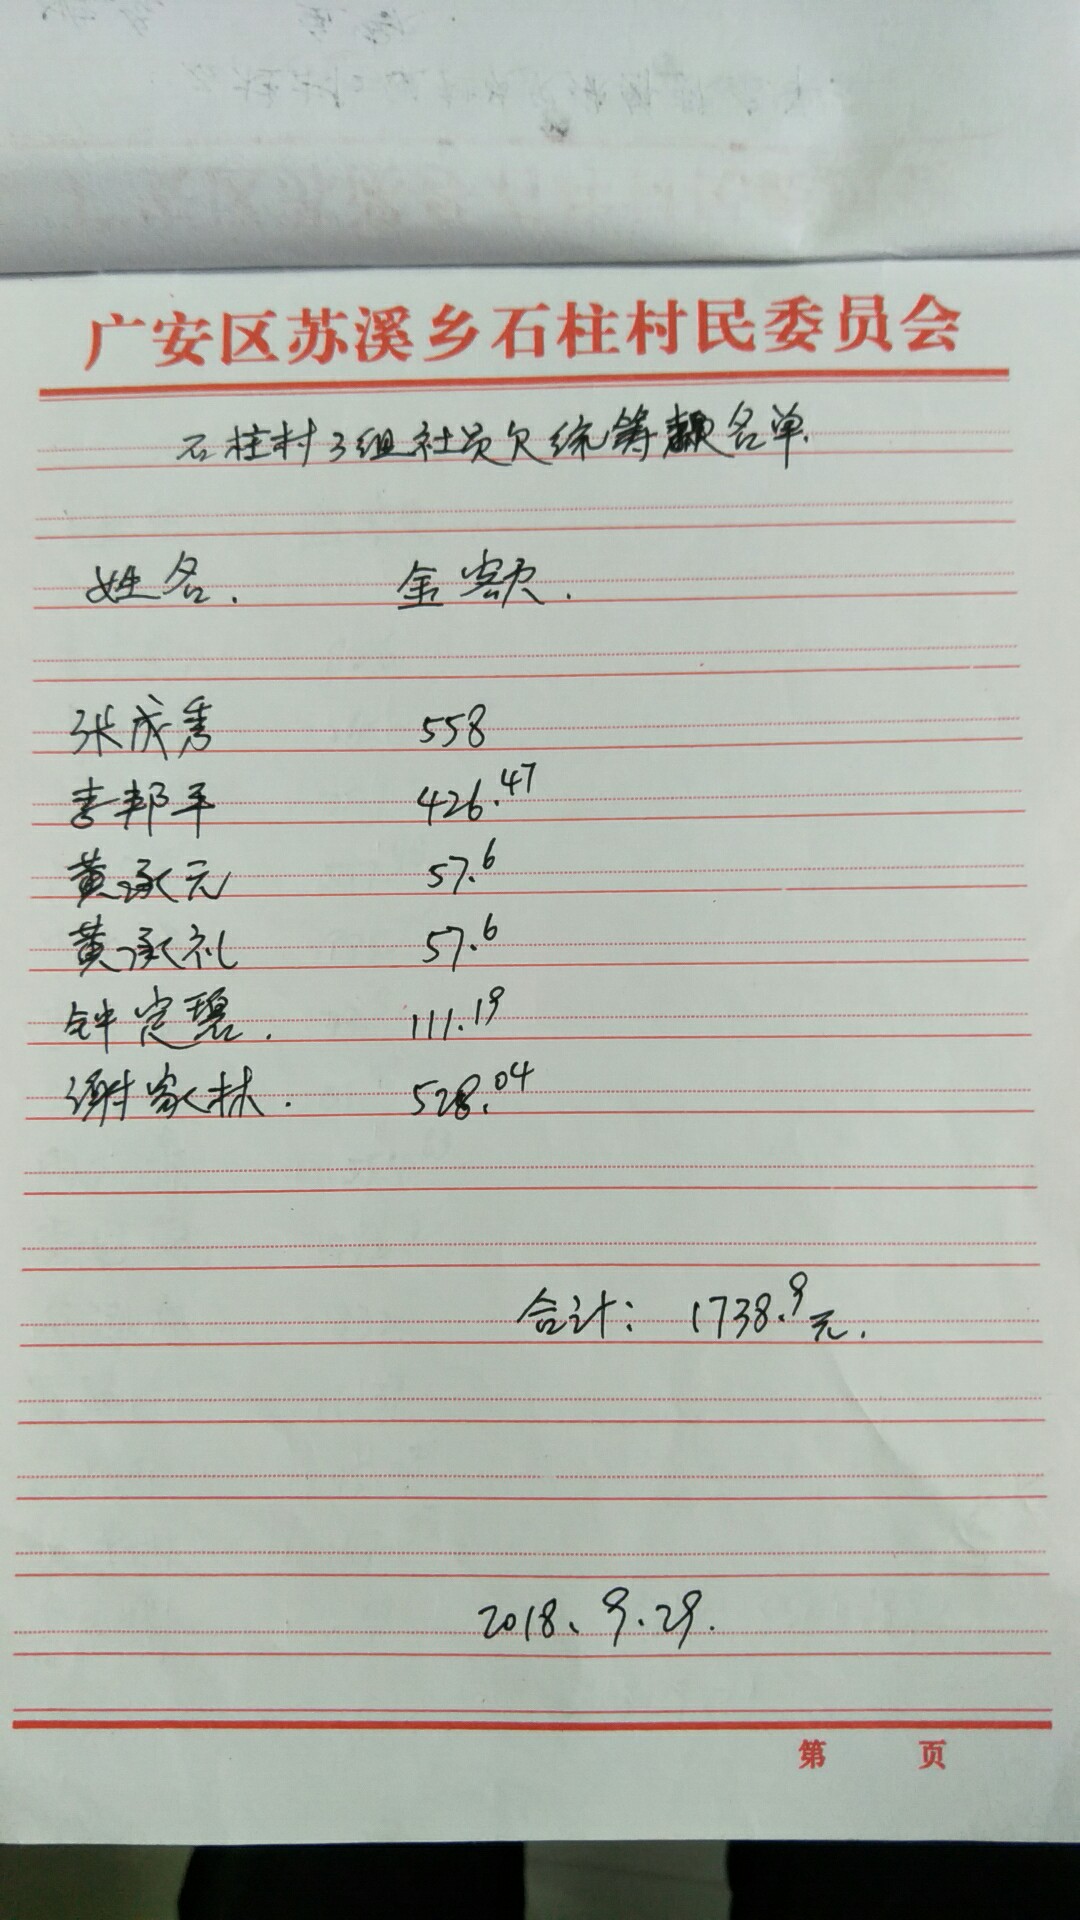 广安区苏溪乡石柱村民委员会
石柱村3组社员欠统筹款名单.
姓名. 金额.
张成秀 558
李邦平 426.47
黄承元 57.6
黄承礼 57.6
钟定碧. 111.19
谢家林. 528.04
合计: 1738.9元.
2018、9.29.
第 页